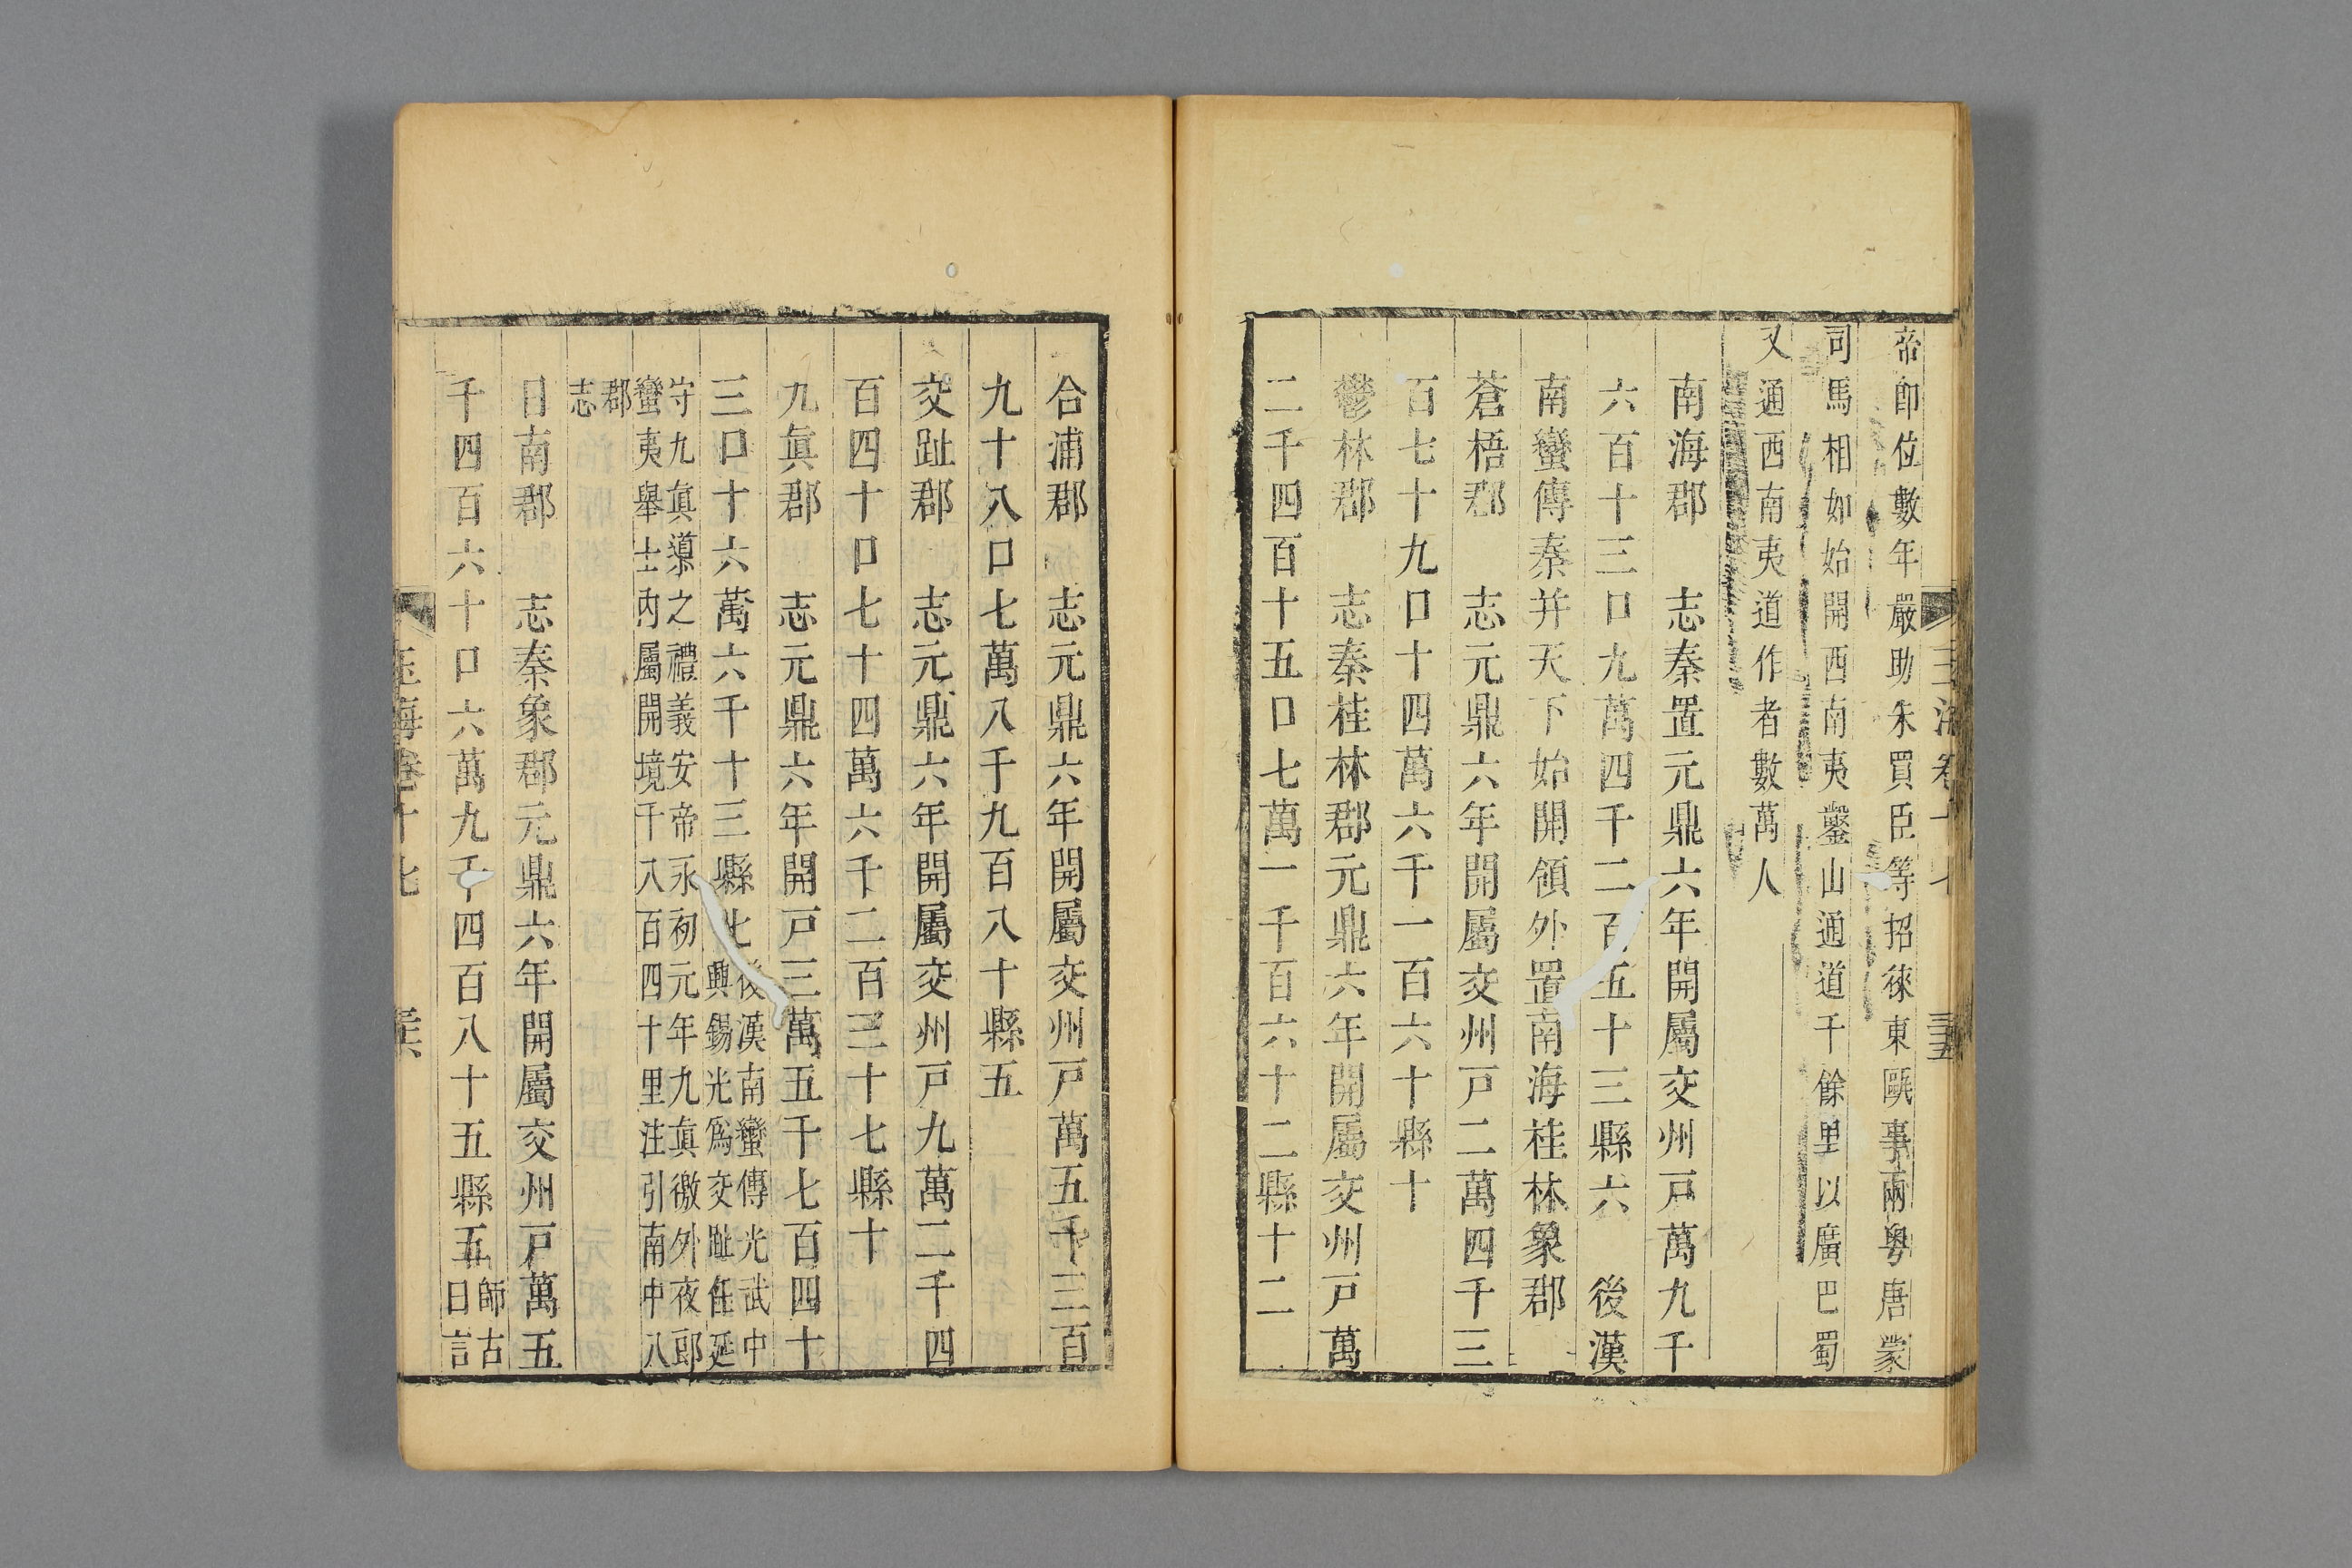 帝卽位數年嚴助朱買臣等招徠東甌事兩粵唐蒙
司馬相如始開西南夷鑿山通道千餘里以廣巴蜀
又通西南夷道作者數萬人
南海郡　志秦置元鼎六年開屬交州戸萬九千
六百十三口九萬四千二百五十三縣六　後漢
南蠻傳秦并天下始開領外置南海桂林象郡
蒼梧郡　志元鼎六年開屬交州戸二萬四千三
百七十九口十四萬六千一百六十縣十
鬱林郡　志秦桂林郡元鼎六年開屬交州戸萬
二千四百十五口七萬一千百六十二縣十二
合浦郡　志元鼎六年開屬交州戸萬五千三百
九十八口七萬八千九百八十縣五
交趾郡　志元鼎六年開屬交州戸九萬二千四
百四十口七十四萬六千二百三十七縣十
九眞郡　志元鼎六年開戸三萬五千七百四十
三口十六萬六千十三縣七後漢南蠻傳光武中
興錫光爲交趾任延
守九眞導之禮義安帝永初元年九眞徼外夜郎
蠻夷舉土內屬開境千八百四十里注引南中八
郡
志
日南郡　志秦象郡元鼎六年開屬交州戸萬五
千四百六十口六萬九千四百八十五縣五師古
曰言
玉海卷十七